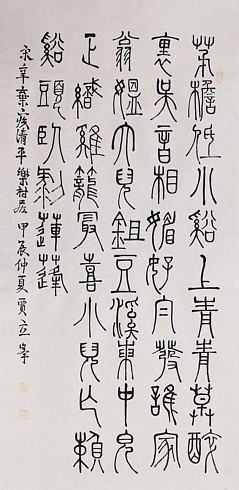 茅檐低小谿上青青草醉
裏吴音相媚好白髮誰家
翁媼大兒鉏豆溪東中兒
正織雞籠最喜小兒亡賴
谿頭卧剥蓮蓬
宋辛棄疾清平樂村居 甲辰仲夏 賈立峯